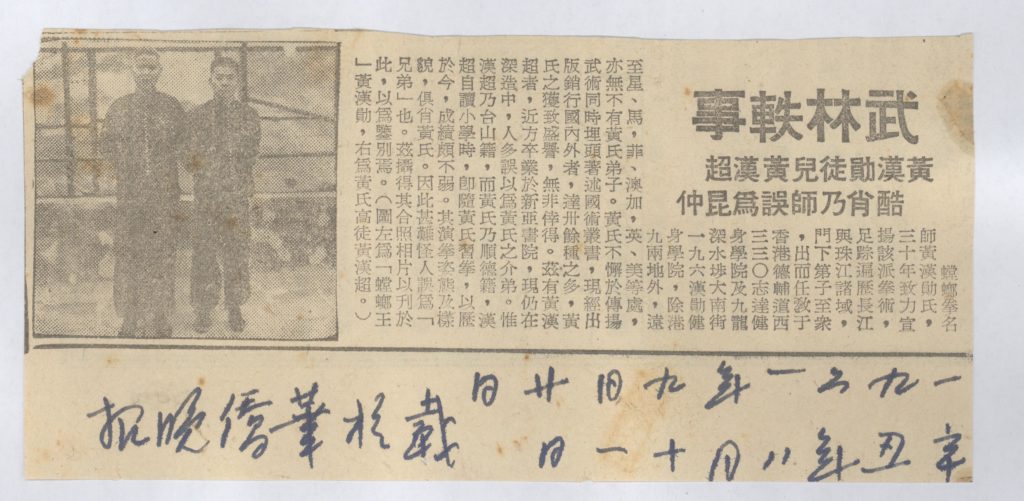 武林軼事
黃漢勛徒兒黃漢超
酷肖乃師誤爲昆仲
螳螂拳名
師黃漢勛氏，
三十年致力宣
揚該派拳術，
足踪遍歷長江
與珠江諸域，
門下弟子至衆
，出而任敎于
香港德輔道西
三三〇志達健
身學院及九龍
深水埗大南街
一九六漢勛健
身學院，除港
九兩地外，遠
至星、馬，菲、澳加，英、美等處，
亦無不有黃氏弟子。黃氏不懈於傳揚
武術同時埋頭著述國術叢書，現經出
版銷行國內外者，達卅餘種之多，黃
氏之獲致盛譽，無非倖得。茲有黃漢
超者，近方卒業於新亞書院，現仍在
深造中，人多誤以爲黃氏之介弟。惟
漢超乃台山籍，而黃氏乃順德籍，漢
超自讀小學時，卽隨黃氏習拳，以歷
於今，成績頗不弱。其演拳姿態及樣
貌，俱肖黃氏。因此甚難怪人誤爲「
兄弟」也。茲攝得其合照相片以刊於
此，以爲鑒別焉。（圖左爲「螳螂王
」黃漢勛，右爲黃氏高徒黃漢超。）
一九六一年九月廿日
辛丑年八月十一日
載於華僑晚报